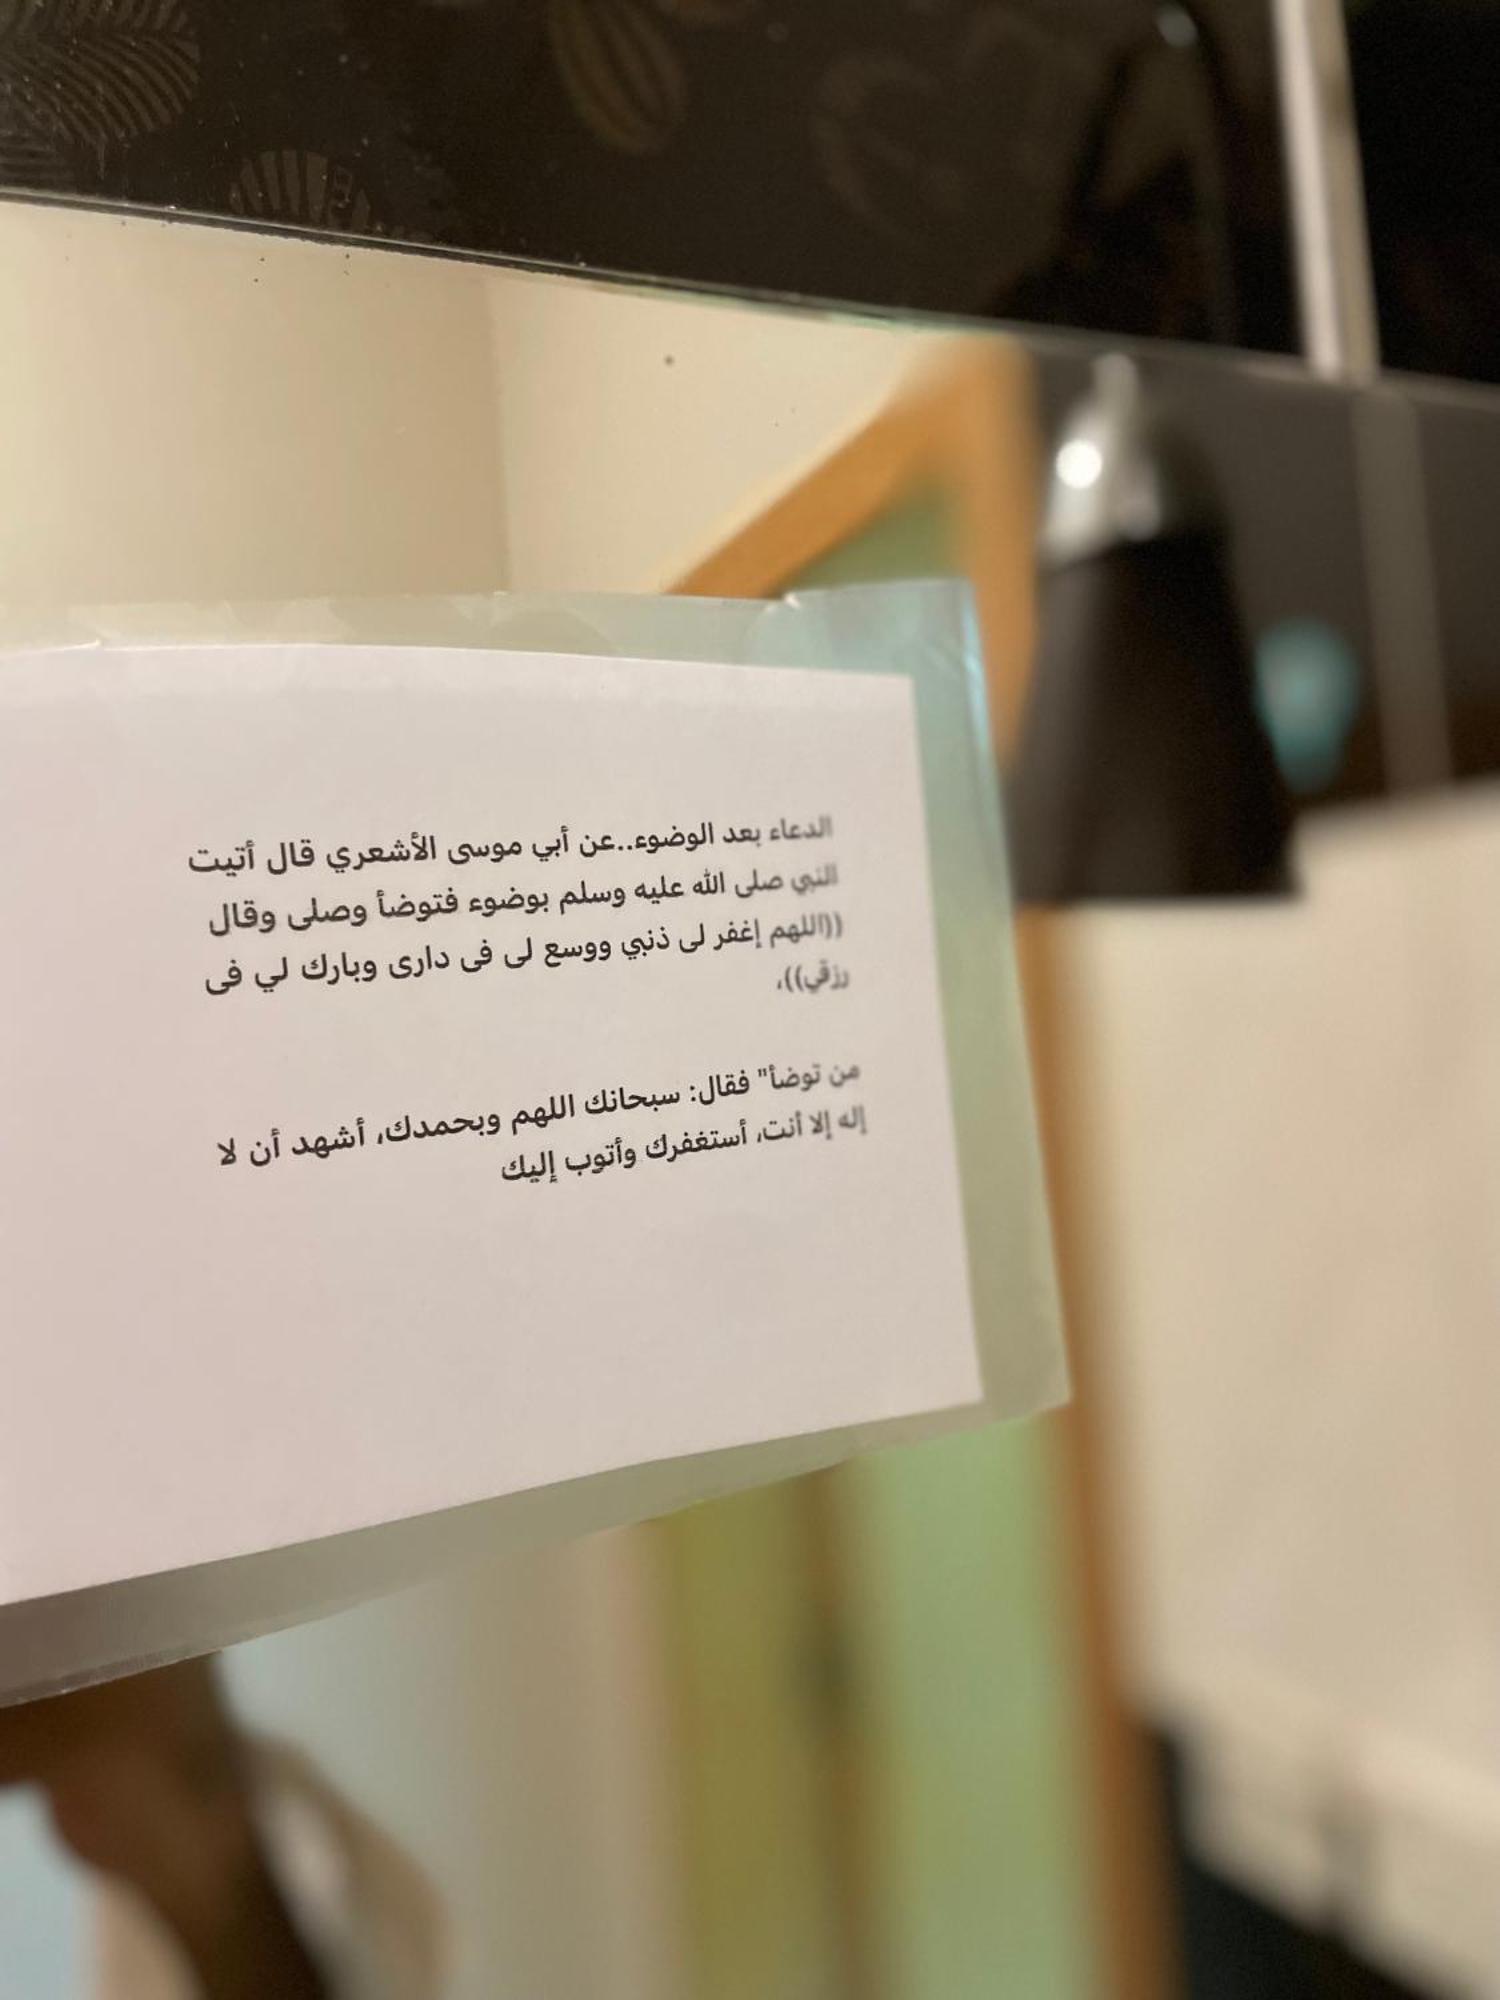 الدعاء بعد الوضوء..عن أبي موسى الأشعري قال أتيت
النبي صلى الله عليه وسلم بوضوء فتوضأ وصلى وقال
((اللهم إغفر لى ذنبي ووسع لى فى دارى وبارك لي فى
رزقي))،
من توضأ" فقال: سبحانك اللهم وبحمدك، أشهد أن لا
إله إلا أنت، أستغفرك وأتوب إليك